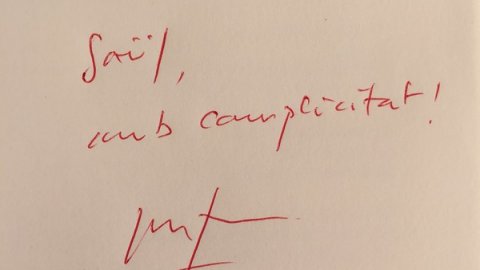 Saül,
amb complicitat!